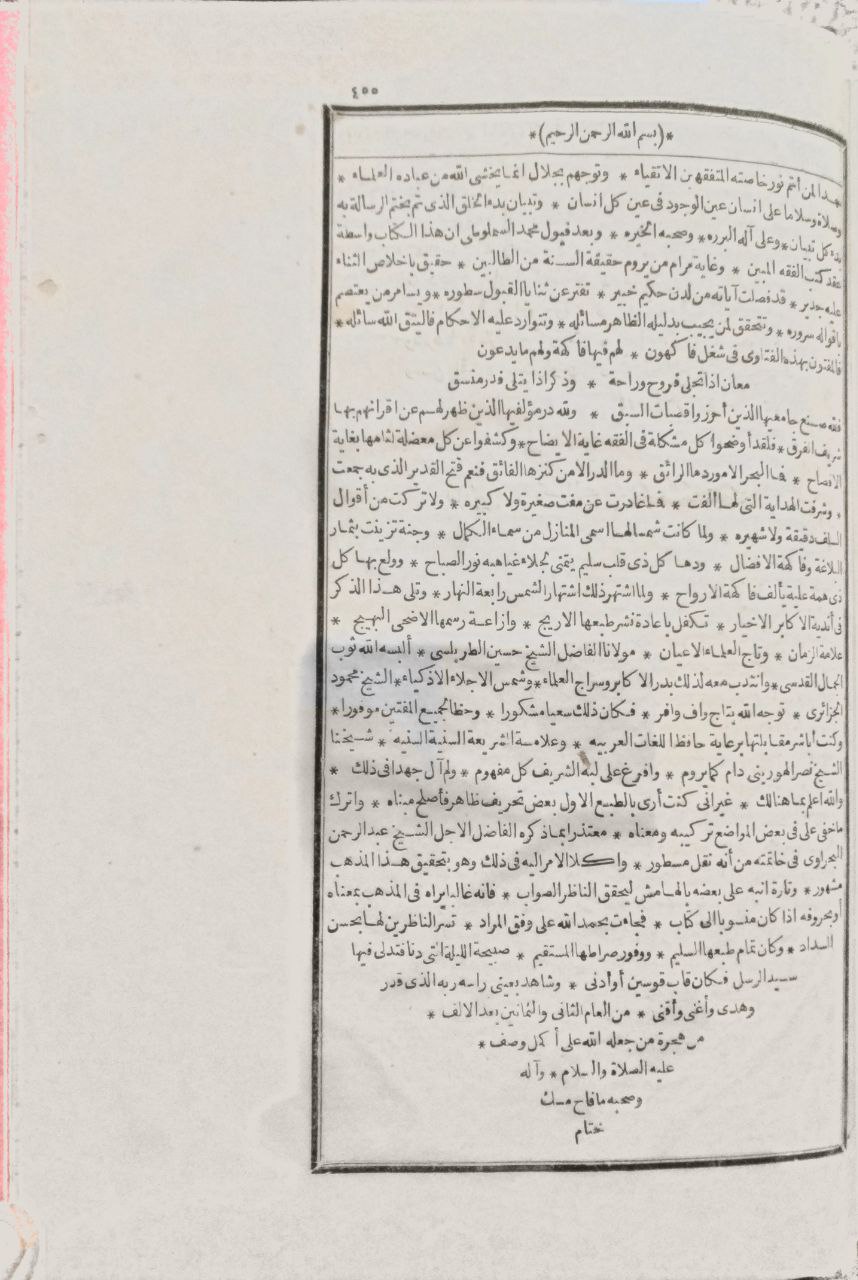 ٤٥٥
*(بسم الله الرحمن الرحيم)*
لمن أتم نور خاصته المتفقهين الاتقياء * وتوجهم بجلال انما يخشى الله من عباده العلماء *
وصلاة وسلاما على انسان عين الوجود فى عين كل انسان * وتبيان بدء الخلق الذى تم بختم الرسالة به
بدء كل تبيان * وعلى آله البرره * وصحبه الخيره * وبعد فيقول محمد السملوطى ان هذا الكتاب واسطة
عقد كتب الفقه المبين * وغاية مرام من يروم حقيقة السنة من الطالبين * حقيق باخلاص الثناء
عليه جدير * قد فصلت آياته من لدن حكيم خبير * تفتر عن ثنايا القبول سطوره * ويسامر من يعتصم
باقواله سروره * وتتحقق لمن يجيب بدليله الظاهر مسائله * وتتوارد عليه الاحكام فاليتق الله سائله *
فالمفتون بهذه الفتاوى فى شغل فاكهون * لهم فيها فاكهة ولهم ما يدعون
معان اذا تجلى فروح وراحة * وذكر اذا يتلى فدر منسق
فقه صنع جامعيها الذين أحرزوا قصبات السبق * ولله در مؤلفيها الذين ظهر لهم عن اقرانهم بها
شريف الفرق * فلقد أوضحوا كل مشكلة فى الفقه غاية الايضاح * وكشفوا عن كل معضلة لثامها بغاية
الافصاح * فما البحر الا موردها الرائق * وما الدر الا من كنزها الفائق فنعم فتح القدير الذى به جمعت
وشرفت الهداية التى لها ألفت * فما غادرت عن مفت صغيرة ولا كبيره * ولا تركت من أقوال
السلف دقيقة ولا شهيره * ولما كانت شمسا لها اسمى المنازل من سماء الكمال * وجنة تزينت بثمار
البلاغة وفاكهة الافضال * ودها كل ذى قلب سليم يتمنى تجلاء غياهبه نور الصباح * وولع بها كل
ذى همة علية يألف فاكهة الارواح * ولما اشتهر ذلك اشتهار الشمس رابعة النهار * وتلى هذا الذكر
فى أندية الاكابر الاخيار * تكفل باعادة نشر طبعها الاريج * واذاعة رسمها الاضحى البهيج *
علامة الزمان * وتاج العلماء الاعيان * مولانا الفاضل الشيخ حسين الطربلسى * ألبسه الله ثوب
الجمال القدسى * وانتدب معه لذلك بدر الاكابر وسراج العلماء * وشمس الاجلاء الأذكياء * الشيخ محمود
الجزائرى * توجه الله بتاج واف وافر * فكان ذلك سعيا مشكورا * وحظا لجميع المفتين موفورا *
وكنت أباشر مقابلتها برعاية حافظ اللغات العربيه * وعلامة الشريعة السنية السنيه * شيخنا
الشيخ نصر الهورينى دام كما يروم * وافرغ على لبه الشريف كل مفهوم * ولم آل جهدا فى ذلك *
والله اعلم بما هنالك * غير انى كنت أرى بالطبع الاول بعض تحريف ظاهر فأصلح مبناه * واترك
ما خفى على فى بعض المواضع تركيبه ومعناه * معتذرا بما ذكره الفاضل الاجل الشيخ عبد الرحمن
البحراوى فى خاتمته من أنه نقل مسطور * واكلا الامر اليه فى ذلك وهو بتحقيق هذا المذهب
مشهور * وتارة انبه على بعضه بالهامش ليحقق الناظر الصواب * فانه غالبا يراه فى المذهب بمعناه
أو بحروفه اذا كان منسوبا الى كتاب * فجاءت بحمد الله على وفق المراد * تسر الناظرين لها بحسن
السداد * وكان تمام طبعها السليم * ووفور صراطها المستقيم * صبيحة الليلة التى دنا فتدلى فيها
سيد الرسل فكان قاب قوسين أو أدنى * وشاهد بعينى رأسه ربه الذى قدر
وهدى وأغنى وأقنى * من العام الثانى والثمانين بعد الالف *
من هجرة من جعله الله على أكمل وصف *
عليه الصلاة والسلام * وآله
وصحبه ما فاح مسك
ختام